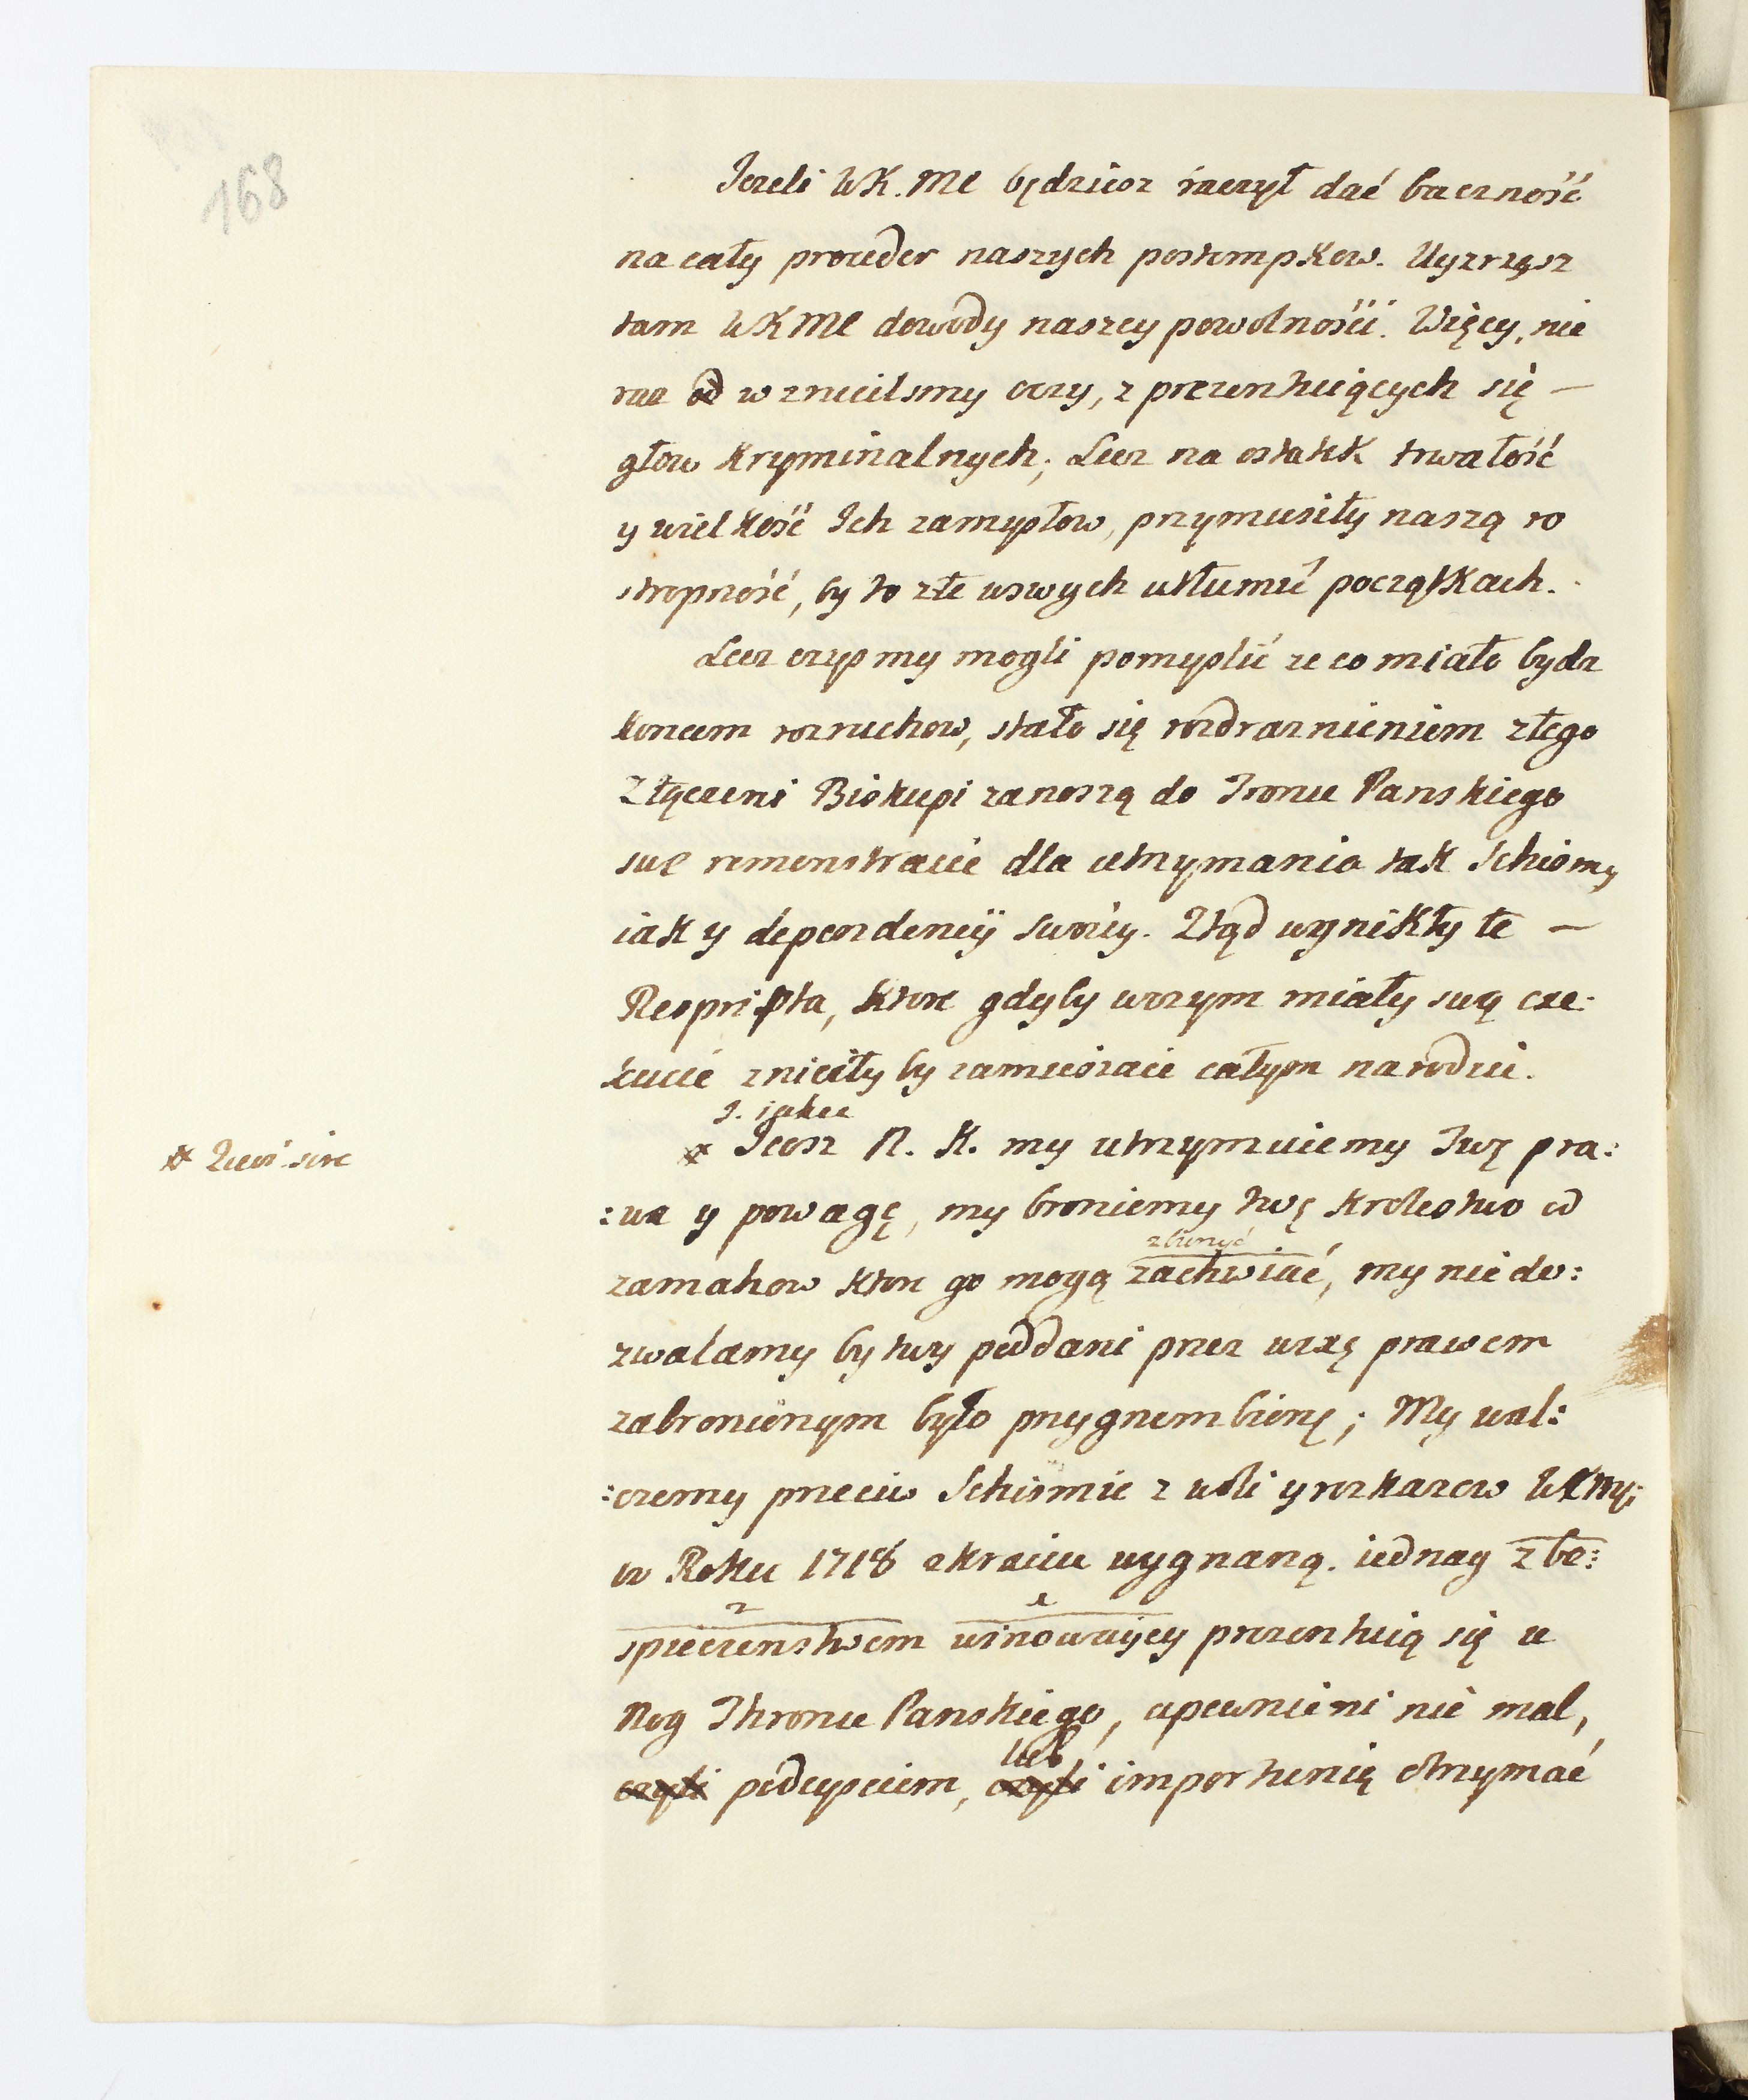 168
Jezeli WK. Mć będziesz raczył dać baczność
na cały proceder naszych postempkow. Uyzrzysz
tam WKMć dowody naszey powolności. Więcy, nie
raz od wzrucilsmy oczy, z prezentuiących się —
głow kryminalnych; Lecz na ostatek trwałość
y wielkość Ich zamysłow, przymusiły naszą ro
stropność, by to złe wswych utłumić początkach.
Lecz czysmy mogli pomyslić ze co miało bydz
koncem rozruchow, stało się rozdraznieniem złego
Złączeni Biskupi zanoszą do Tronu Panskiego
swe remonstracie dla utrzymania tak Schismy
iak y dependencÿ swoiey. Ztąd wynikły te —
Respripta, ktore gdyby wczym miały swą exe:
kucie znieciły by zamieszaie całym narodzie.
J. iakce
※ Jecsz N. K. my utrzymuiemy Twę pra:
※ Zwoi sire
:wa y powagę, my broniemy twę krolestwo od
zburzyć
zamahow ktore go mogą zachwiać, my nie do:
zwalamy by twy poddani przez uzzę prawem
zabronionym było przygnembionę; My wal:
:czemy przeciw Schismie z woli y rozkazow WKMę:
w Roku 1718 zkraiu wygnaną. iednag zbe:
2 1
spieczenstwem winowaycy prezentuią się u
Nog Thronu Panskiego, upewnieni nie mal,
lub
czyli podeysciem, czyli importunią otrzymać